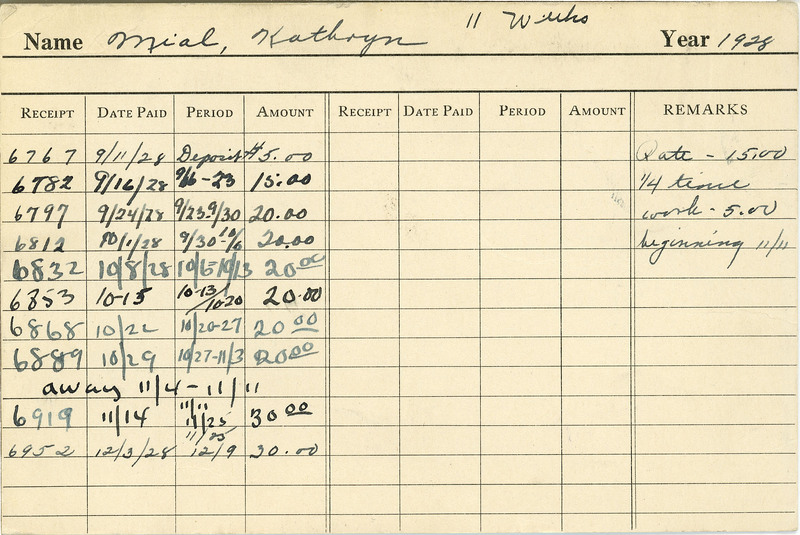 11 Weeks
Name Mial, Kathryn Year 1928
RECEIPT DATE PAID PERIOD AMOUNT RECEIPT DATE PAID PERIOD AMOUNT REMARKS
6767 9/11/28 Deposit $5.00 Rate - 15.00
6782 9/16/28 9/16-23 15.00 1/4 time
6797 9/24/28 9/23-9/30 20.00 work - 5.00
6812 10/1/28 9/30-10/6 20.00 beginning 11/11
6832 10/8/28 10/6-10/13 20.00
6853 10-15 10-13/10-20 20.00
6868 10/22 10/20-27 20.00
6889 10/29 10/27-11/3 20.00
away 11/4-11/11
6919 11/14 11/11 11/25 30.00
6952 12/3/28 11/25 12/9 30.00